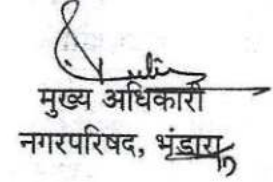 मुख्य अधिकारी
नगरपरिषद, भंडारा